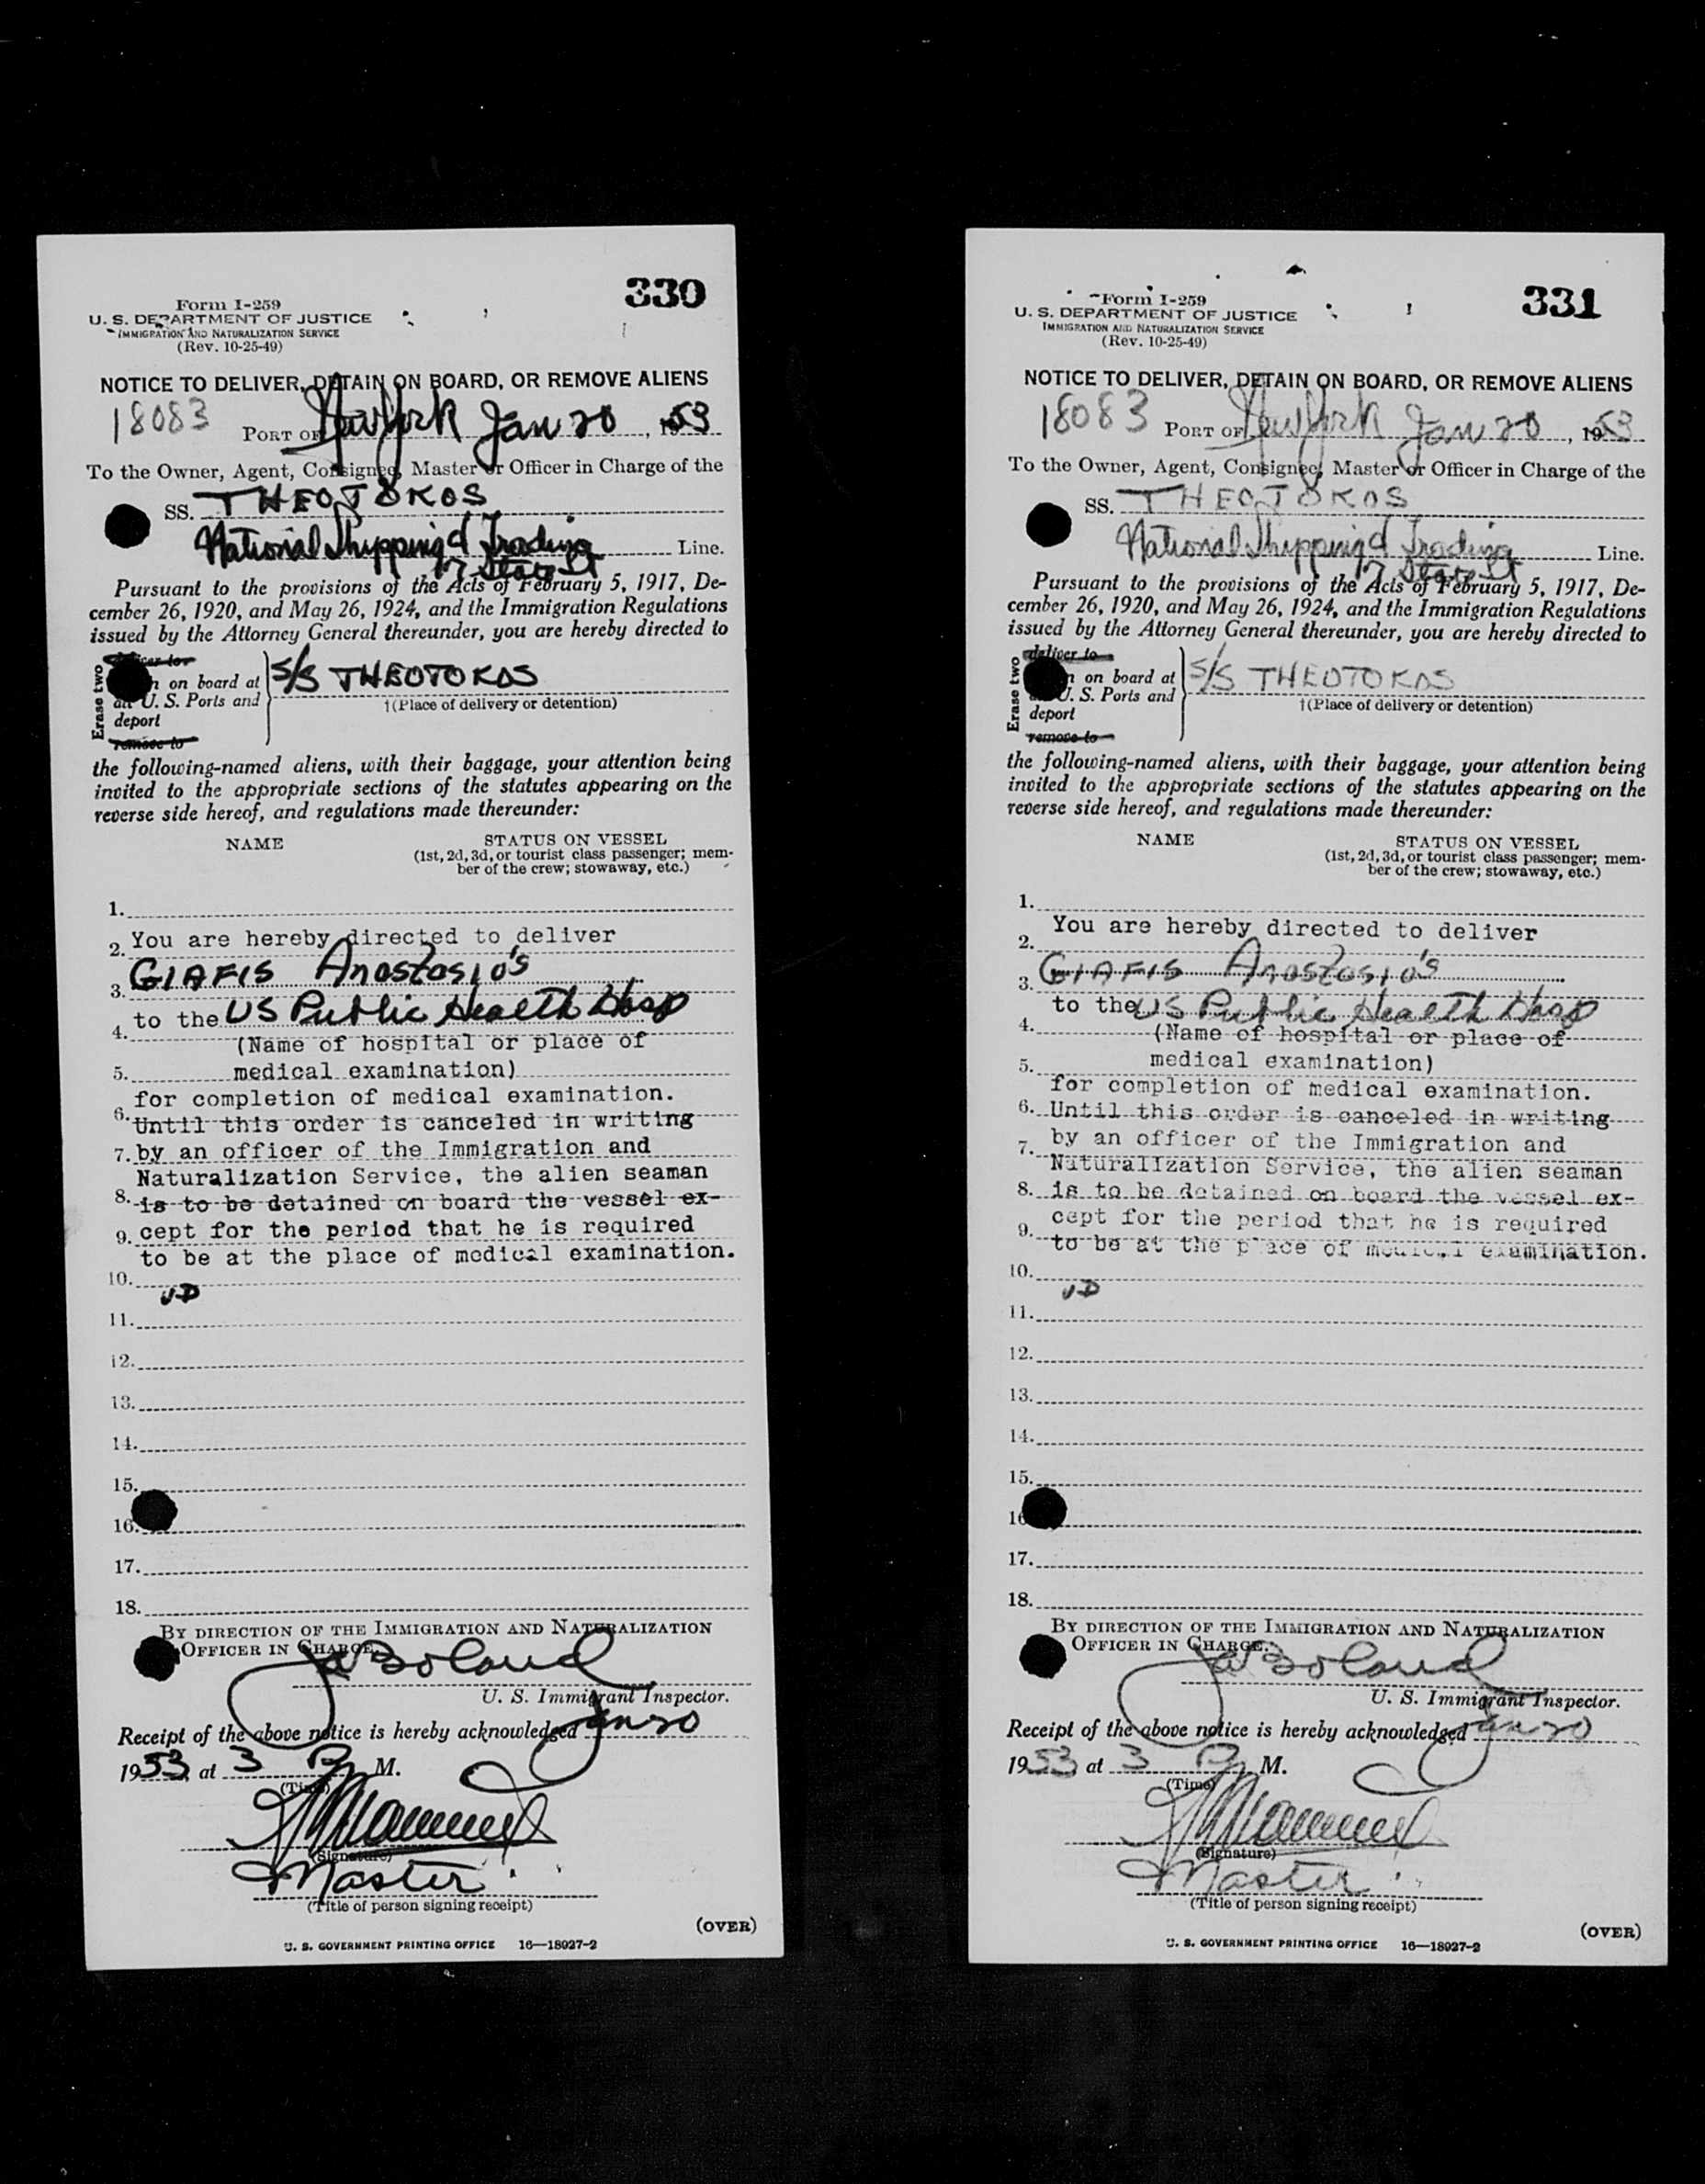 330
Form I-259
U. S. DEPARTMENT OF JUSTICE
IMMIGRATION AND NATURALIZATION SERVICE
(Rev. 10-25-49)
NOTICE TO DELIVER, DETAIN ON BOARD, OR REMOVE ALIENS
18083 PORT OF New York Jan 20, 1953
To the Owner, Agent, Consignee, Master or Officer in Charge of the
SS. THEOTOKOS
National Shipping & Trading Line.
17 State St
Pursuant to the provisions of the Acts of February 5, 1917, De-
cember 26, 1920, and May 26, 1924, and the Immigration Regulations
issued by the Attorney General thereunder, you are hereby directed to
Erase two
on board at S/S THEOTOKOS
U. S. Ports and †(Place of delivery or detention)
deport
remove to
the following-named aliens, with their baggage, your attention being
invited to the appropriate sections of the statutes appearing on the
reverse side hereof, and regulations made thereunder:
NAME STATUS ON VESSEL
(1st, 2d, 3d, or tourist class passenger; mem-
ber of the crew; stowaway, etc.)
1.
2. You are hereby directed to deliver
3. GIAFIS Anastasio's
4. to the US Public Health Hosp
(Name of hospital or place of
5. medical examination)
for completion of medical examination.
6. Until this order is canceled in writing
7. by an officer of the Immigration and
Naturalization Service, the alien seaman
8. is to be detained on board the vessel ex-
9. cept for the period that he is required
to be at the place of medical examination.
10.
VD
11.
12.
13.
14.
15.
16.
17.
18.
BY DIRECTION OF THE IMMIGRATION AND NATURALIZATION
OFFICER IN CHARGE.
Boland
U. S. Immigrant Inspector.
Receipt of the above notice is hereby acknowledged Jan 20
1953, at 3 P. M.
(Time)
(Signature)
Master
(Title of person signing receipt)
(OVER)
U. S. GOVERNMENT PRINTING OFFICE 16—18927-2
331
Form I-259
U. S. DEPARTMENT OF JUSTICE
IMMIGRATION AND NATURALIZATION SERVICE
(Rev. 10-25-49)
NOTICE TO DELIVER, DETAIN ON BOARD, OR REMOVE ALIENS
18083 PORT OF New York Jan 20, 1953
To the Owner, Agent, Consignee, Master or Officer in Charge of the
SS. THEOTOKOS
National Shipping & Trading Line.
17 State St
Pursuant to the provisions of the Acts of February 5, 1917, De-
cember 26, 1920, and May 26, 1924, and the Immigration Regulations
issued by the Attorney General thereunder, you are hereby directed to
Erase two
deliver to
on board at S/S THEOTOKOS
U. S. Ports and †(Place of delivery or detention)
deport
remove to
the following-named aliens, with their baggage, your attention being
invited to the appropriate sections of the statutes appearing on the
reverse side hereof, and regulations made thereunder:
NAME STATUS ON VESSEL
(1st, 2d, 3d, or tourist class passenger; mem-
ber of the crew; stowaway, etc.)
1.
You are hereby directed to deliver
2.
3. GIAFIS Anastasio's
to the US Public Health Hosp
4. (Name of hospital or place of
5. medical examination)
for completion of medical examination.
6. Until this order is canceled in writing
7. by an officer of the Immigration and
Naturalization Service, the alien seaman
8. is to be detained on board the vessel ex-
9. cept for the period that he is required
to be at the place of medical examination.
10.
VD
11.
12.
13.
14.
15.
16
17.
18.
BY DIRECTION OF THE IMMIGRATION AND NATURALIZATION
OFFICER IN CHARGE.
Boland
U. S. Immigrant Inspector.
Receipt of the above notice is hereby acknowledged Jan 20
1953 at 3 P. M.
(Time)
(Signature)
Master
(Title of person signing receipt)
(OVER)
U. S. GOVERNMENT PRINTING OFFICE 16—18927-2